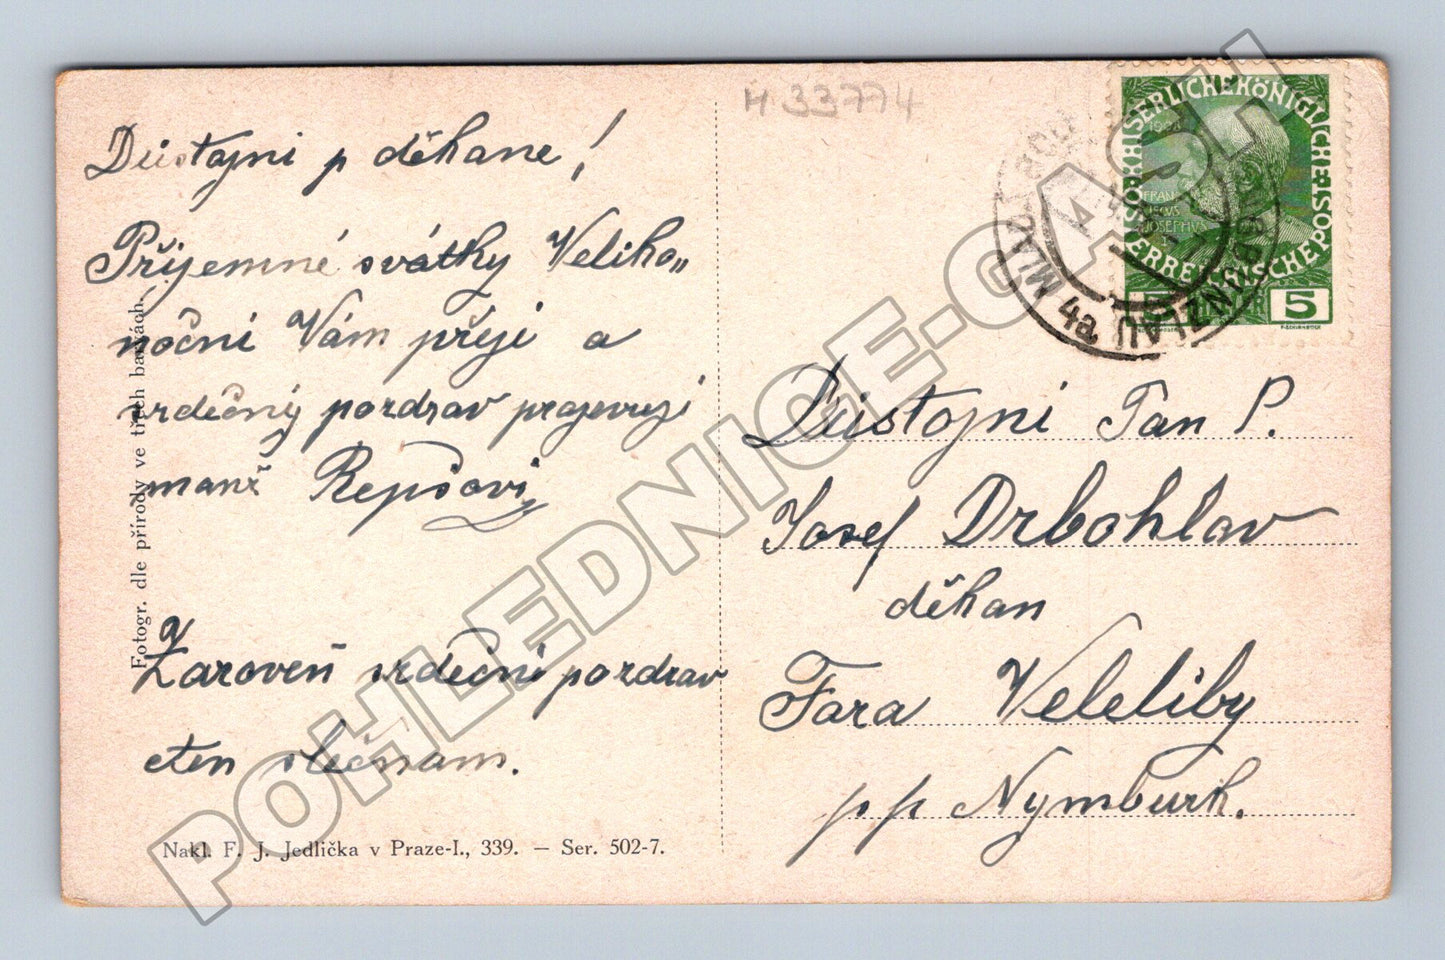 H 33774
Důstojni p děkane!
Příjemné svátky Veliko„
noční Vám přeji a
srdečný pozdrav projevuji
manž Repšovi
Zaroveň srdečni pozdrav
cten slečnam.
Fotogr. dle přírody ve třech barvách.
Nakl. F. J. Jedlička v Praze-I., 339. — Ser. 502-7.
KAISERLICHE KÖNIGLICHE
ÖSTERREICHISCHE POST
FRAN
CISCVS
JOSEPHVS
I
5 5
MLADÁ BOL
BUNZLAU 4a
Důstojni Pan P.
Josef Drbohlav
děkan
Fara Veleliby
p p Nymburk.
POHLEDNICE-CASH